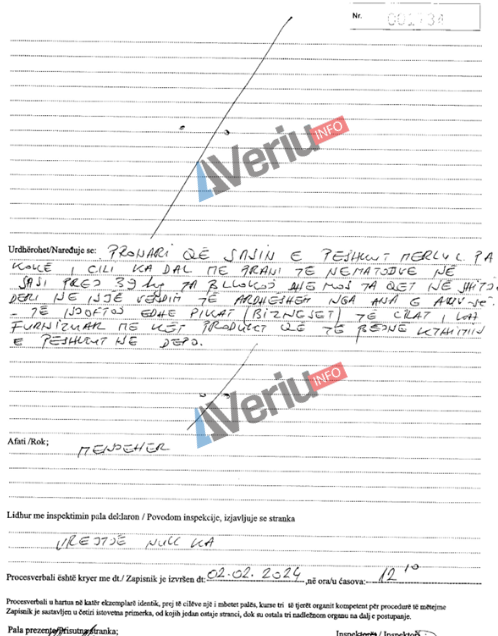 Nr. 001734
Averiu INFO
Urdhërohet/Naređuje se: PRONARI QË SASIN E PESHKUT MERLUC PA
KOKË I CILI KA DAL ME PRANI TË NEMATODVE NË
SASI PREJ 39 kg TA BLLOKOJ DHE MOS TA QET NË SHITJE
DERI NE NJË VENDIM TË ARDHSHËM NGA ANA E AUV-SË.
- TË NJOFTOJ EDHE PIKAT (BIZNESET) TË CILAT I KA
FURNIZUAR ME KËT PRODUKT QË TË BEJNE KTHIMIN
E PESHKUT NE DEPO.
Averiu INFO
Afati /Rok;
MENJEHER
Lidhur me inspektimin pala deklaron / Povodom inspekcije, izjavljuje se stranka
VREJTJE NUK KA
Procesverbali është kryer me dt./ Zapisnik je izvršen dt: 02.02.2024 ,në ora/u časova: 12 10
Procesverbali u hartua në katër ekzemplarë identik, prej të cilëve një i mbetet palës, kurse tri të tjerët organit kompetent për procedurë të mëtejme
Zapisnik je sastavljen u četiri istovetna primerka, od kojih jedan ostaje stranci, dok su ostala tri nadležnom organu na dalj e postupanje.
Pala prezente/prisutna stranka;
Inspektori / Inspektor